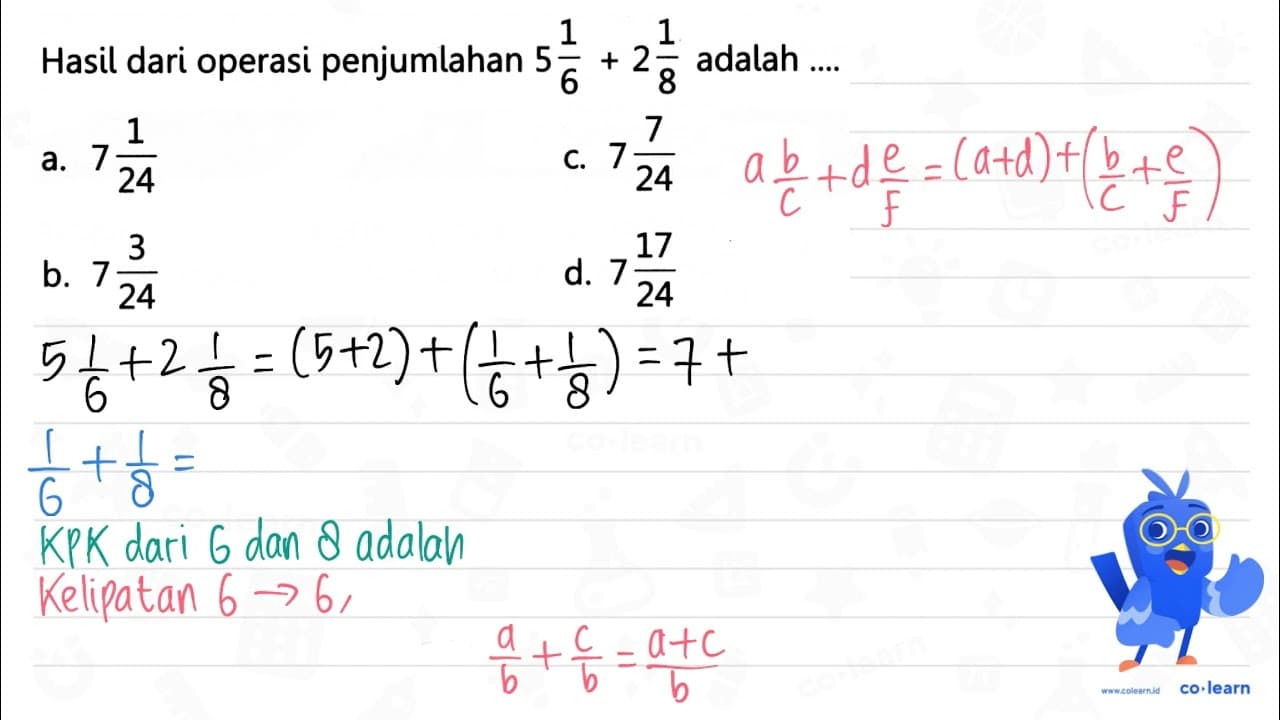 Hasil dari operasi penjumlahan 5 1/6 + 2 1/8 adalah ....
a. 7 1/24
c. 7 7/24
b. 7 3/24
d. 7 17/24
a b/c + d e/f = (a+d) + (b/c + e/f)
5 1/6 + 2 1/8 = (5+2) + (1/6 + 1/8) = 7 +
1/6 + 1/8 =
KPK dari 6 dan 8 adalah
Kelipatan 6 → 6,
a/b + c/b = a+c/b
www.colearn.id co·learn